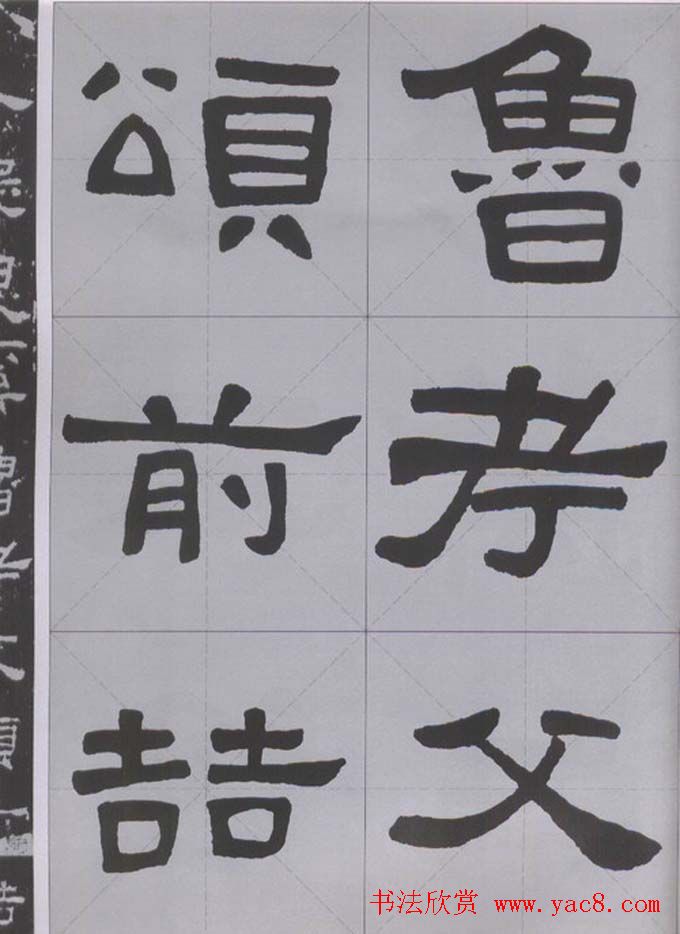 魯考父
頌前喆
书法欣赏 www.yac8.com